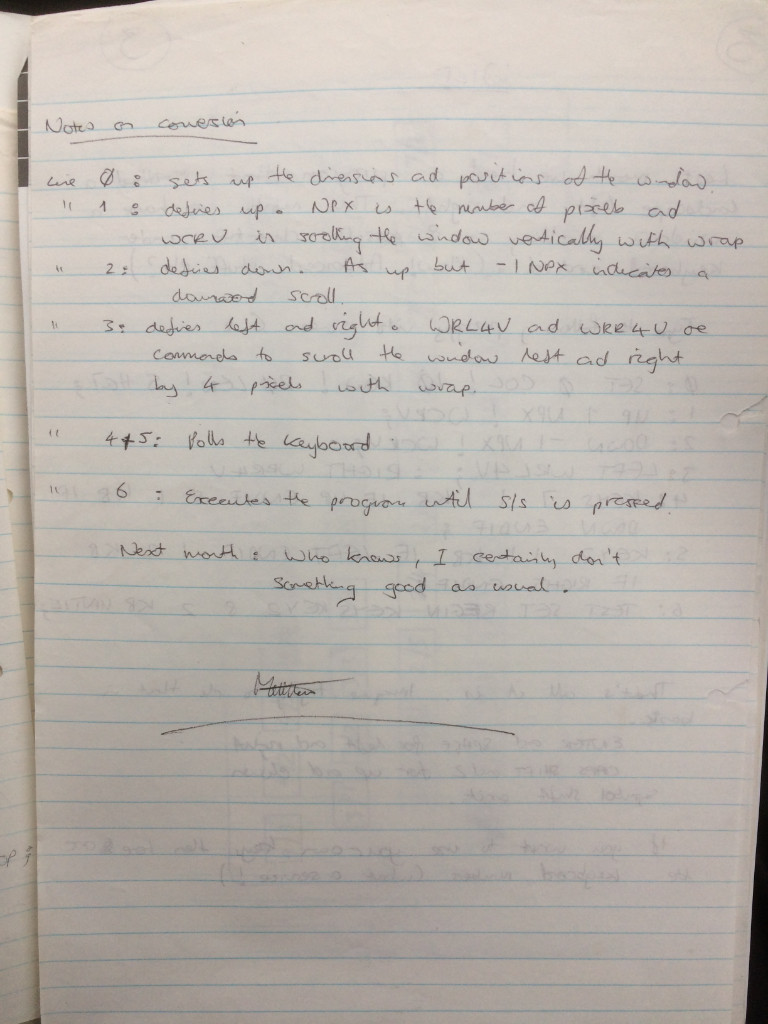 Notes on conversion
Line Ø : sets up the dimensions and positions of the window.
" 1 : defines up. NPX is the number of pixels and
WCRV is scrolling the window vertically with wrap
" 2: defines down. As up but -1 NPX indicates a
downward scroll.
" 3: defines left and right. WRL4V and WRR4V are
commands to scroll the window left and right
by 4 pixels with wrap.
" 4+5: Polls the keyboard
" 6 : Executes the program until S/S is pressed.
Next month : Who knows, I certainly don't
something good as usual.
Matthew